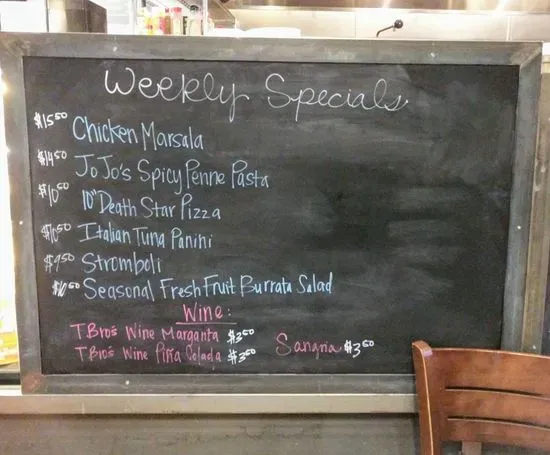 Weekly Specials
$15.50 Chicken Marsala
$14.50 JoJo's Spicy Penne Pasta
$10.50 10" Death Star Pizza
$10.50 Italian Tuna Panini
$9.50 Stromboli
$10.50 Seasonal Fresh Fruit Burrata Salad
Wine:
TBro's Wine Margarita $3.50
TBro's Wine Piña Colada $3.50 Sangria $3.50